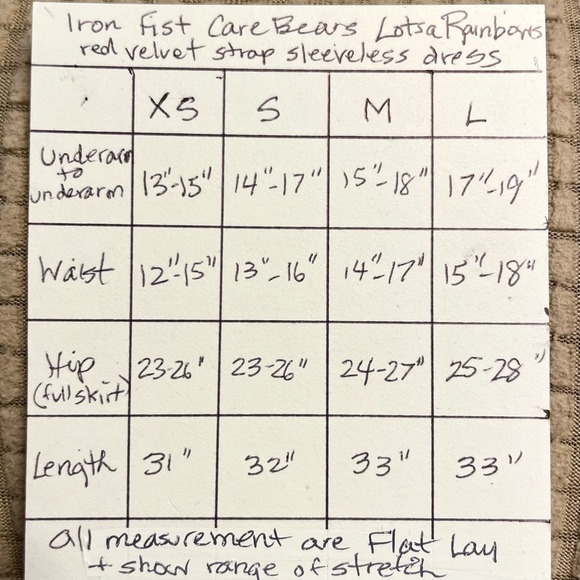 Iron Fist Care Bears Lotsa Rainbows
red velvet strap sleeveless dress
XS S M L
Underarm to underarm 13"-15" 14"-17" 15"-18" 17"-19"
Waist 12"-15" 13"-16" 14"-17" 15"-18"
Hip (full skirt) 23-26" 23-26" 24-27" 25-28"
Length 31" 32" 33" 33"
All measurement are Flat Lay
+ show range of stretch